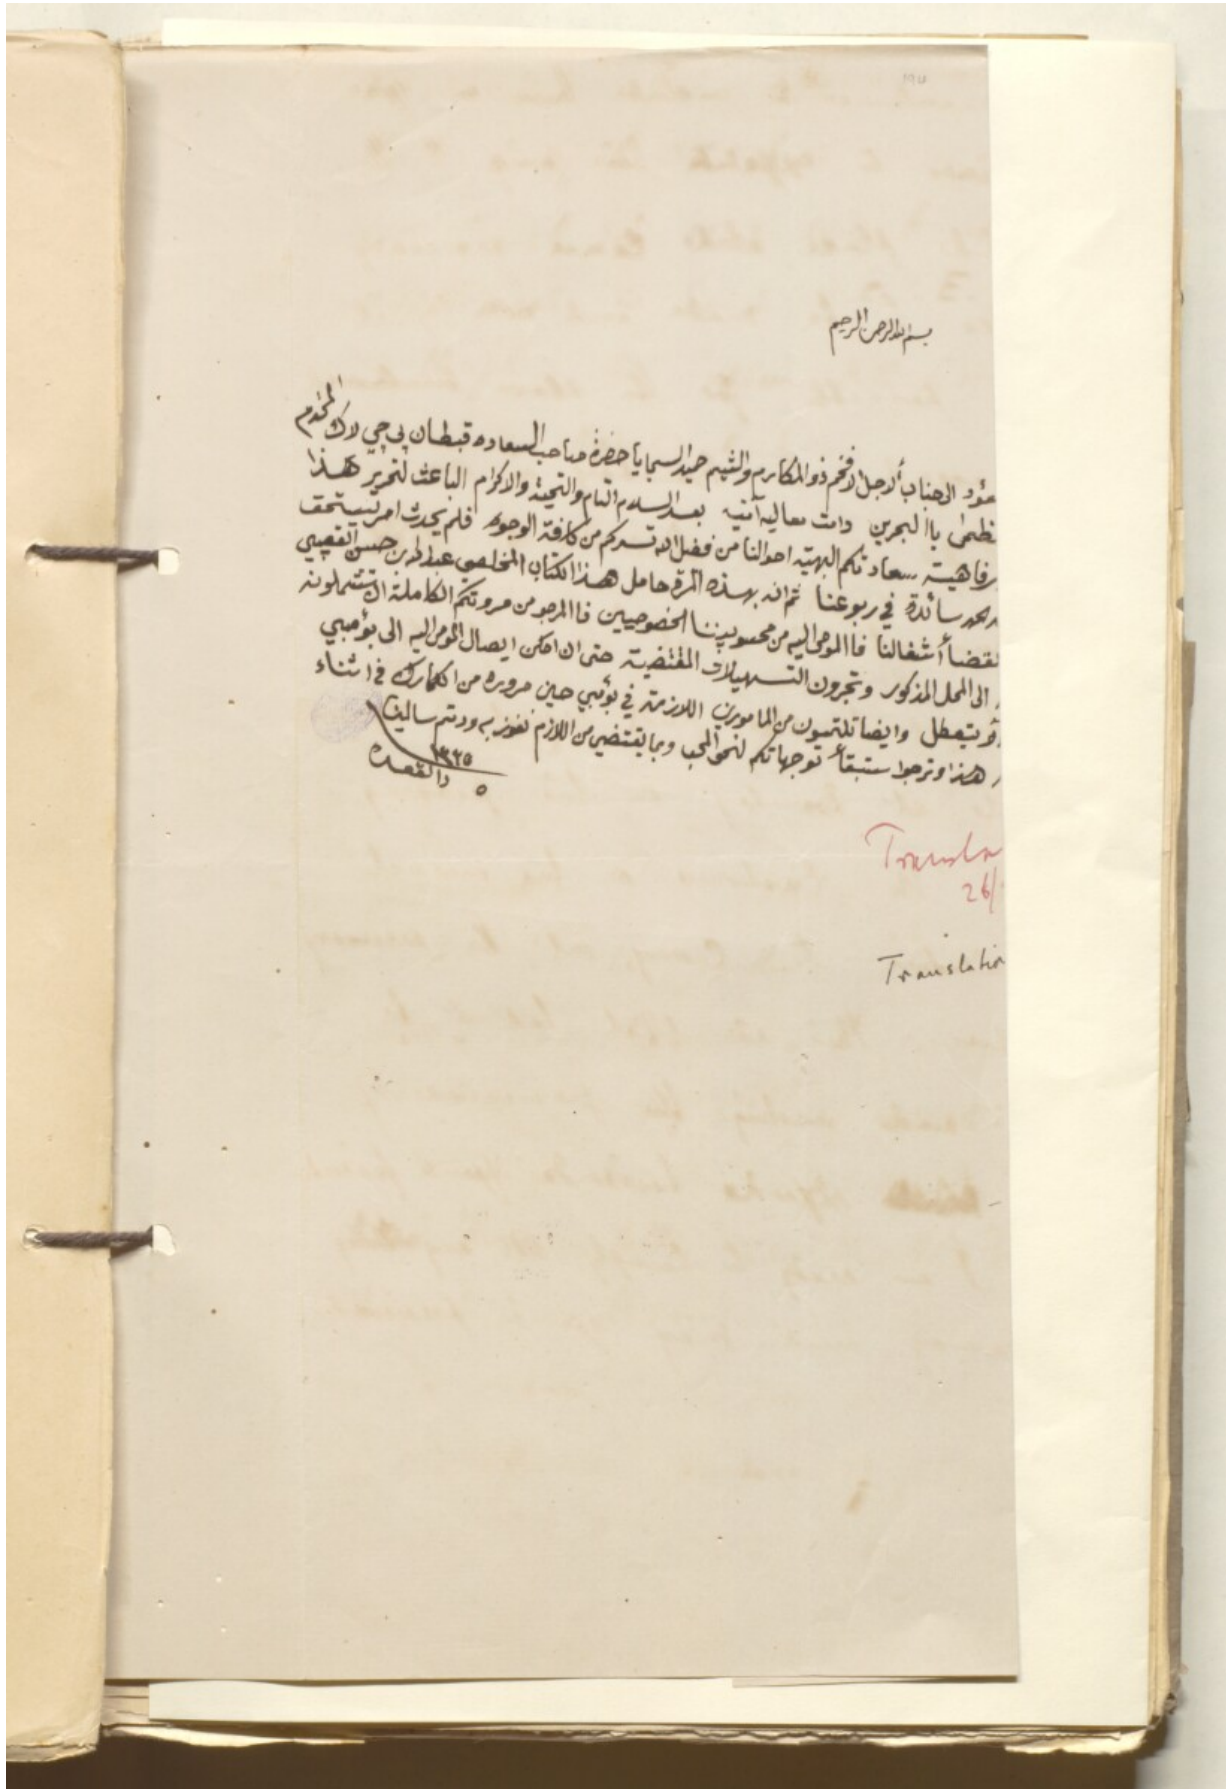 بسم الله الرحمن الرحيم
الى جناب ألاجل الافخم ذو المكارم والشيم حميد السجايا حضرة صاحب السعاده قبطان پي جي لاك المخدم
باالبحرين دامت معاليه آمنيه بعد السلام التام والتحية والاكرام الباعث لتحرير هذا
رفاهية سعادتكم البهيه احوالنا من فضل الله تسركم من كافة الوجوه فلم يحدث امر يستحق
سائدة في ربوعنا ثم انه بهذه المرة حامل هذا الكتاب المخلصي عبدالرحمن بن حسن القصيبي
لقضا أشغالنا فاالمومى اليه من محسوبيننا الخصوصيين فاالمرجو من مروتكم الكاملة ان تشملونه
الى المحل المذكور وتجرون التسهيلات المقتضية حتى ان امكن ايصال المومى اليه الى بومبي
يتعطل وايضا تلتمسون من المامورين اللازمة في بومبي حين مروره من الكمارك في اثناء
هذا ونرجوا ستبقأ توجهاتكم لنحو المحب وبما يقتضي من اللازم نفوز به ودمتم سالمين
١٣٢٥
٥ ذالقعده
Transla
26/
Translation